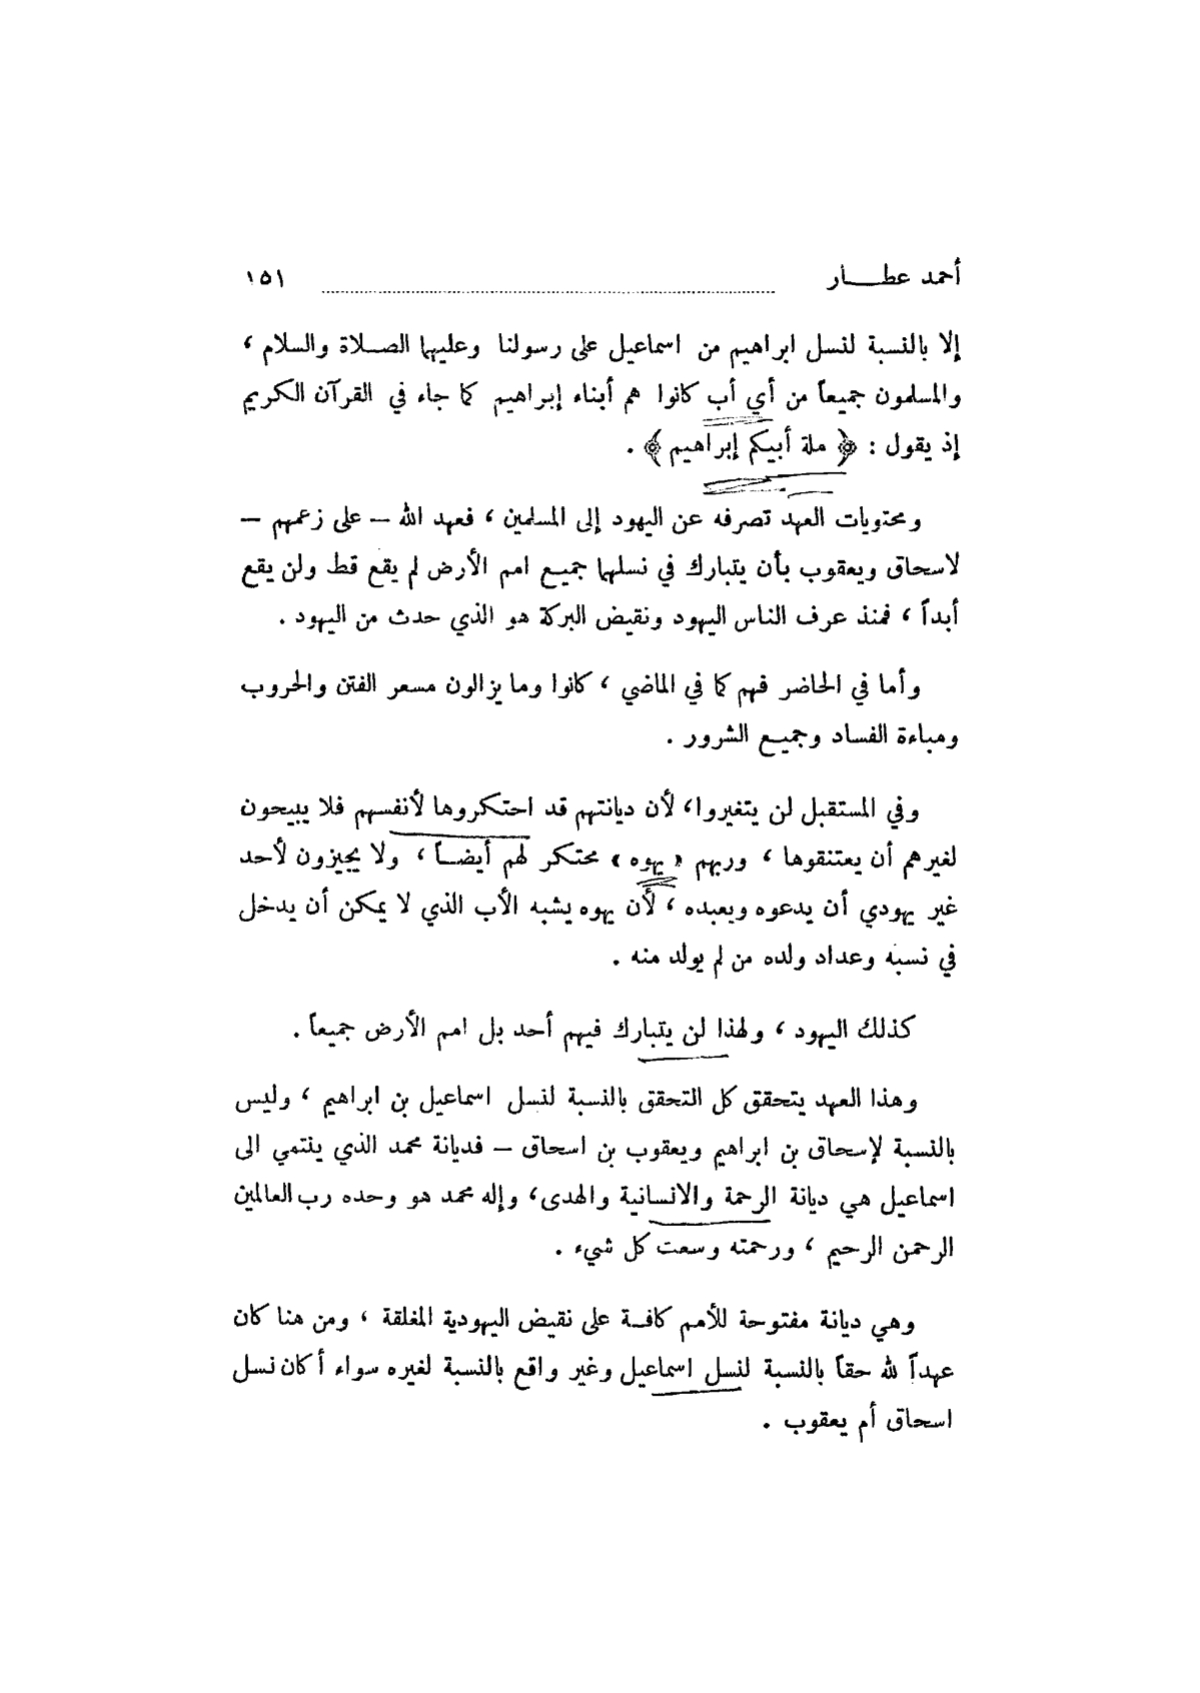 أحمد عطـــار ........................ ١٥١
إلا بالنسبة لنسل ابراهيم من اسماعيل على رسولنا وعليهما الصـلاة والسلام ،
والمسلمون جميعاً من أي أب كانوا هم أبناء إبراهيم كما جاء في القرآن الكريم
إذ يقول : ﴿ ملة أبيكم إبراهيم ﴾ .
ومحتويات العهد تصرفه عن اليهود إلى المسلمين ، فعهد الله – على زعمهم –
لاسحاق ويعقوب بأن يتبارك في نسلهما جميـع امم الأرض لم يقع قط ولن يقع
أبداً ، فمنذ عرف الناس اليهود ونقيض البركة هو الذي حدث من اليهود .
وأما في الحاضر فهم كما في الماضي ، كانوا وما يزالون مسعر الفتن والحروب
ومباءة الفساد وجميـع الشرور .
وفي المستقبل لن يتغيروا، لأن ديانتهم قد احتكروها لأنفسهم فلا يبيحون
لغيرهم أن يعتنقوها ، وربهم « يهوه » محتكر لهم أيضـاً ، ولا يجيزون لأحد
غير يهودي أن يدعوه ويعبده ، لأن يهوه يشبه الأب الذي لا يمكن أن يدخل
في نسبه وعداد ولده من لم يولد منه .
كذلك اليهود ، ولهذا لن يتبارك فيهم أحد بل امم الأرض جميعاً .
وهذا العهد يتحقق كل التحقق بالنسبة لنسل اسماعيل بن ابراهيم ، وليس
بالنسبة لإسحاق بن ابراهيم ويعقوب بن اسحاق – فديانة محمد الذي ينتمي الى
اسماعيل هي ديانة الرحمة والانسانية والهدى، وإله محمد هو وحده رب العالمين
الرحمن الرحيم ، ورحمته وسعت كل شيء .
وهي ديانة مفتوحة للأمم كافـة على نقيض اليهودية المغلقة ، ومن هنا كان
عهداً لله حقاً بالنسبة لنسل اسماعيل وغير واقع بالنسبة لغيره سواء أكان نسل
اسحاق أم يعقوب .